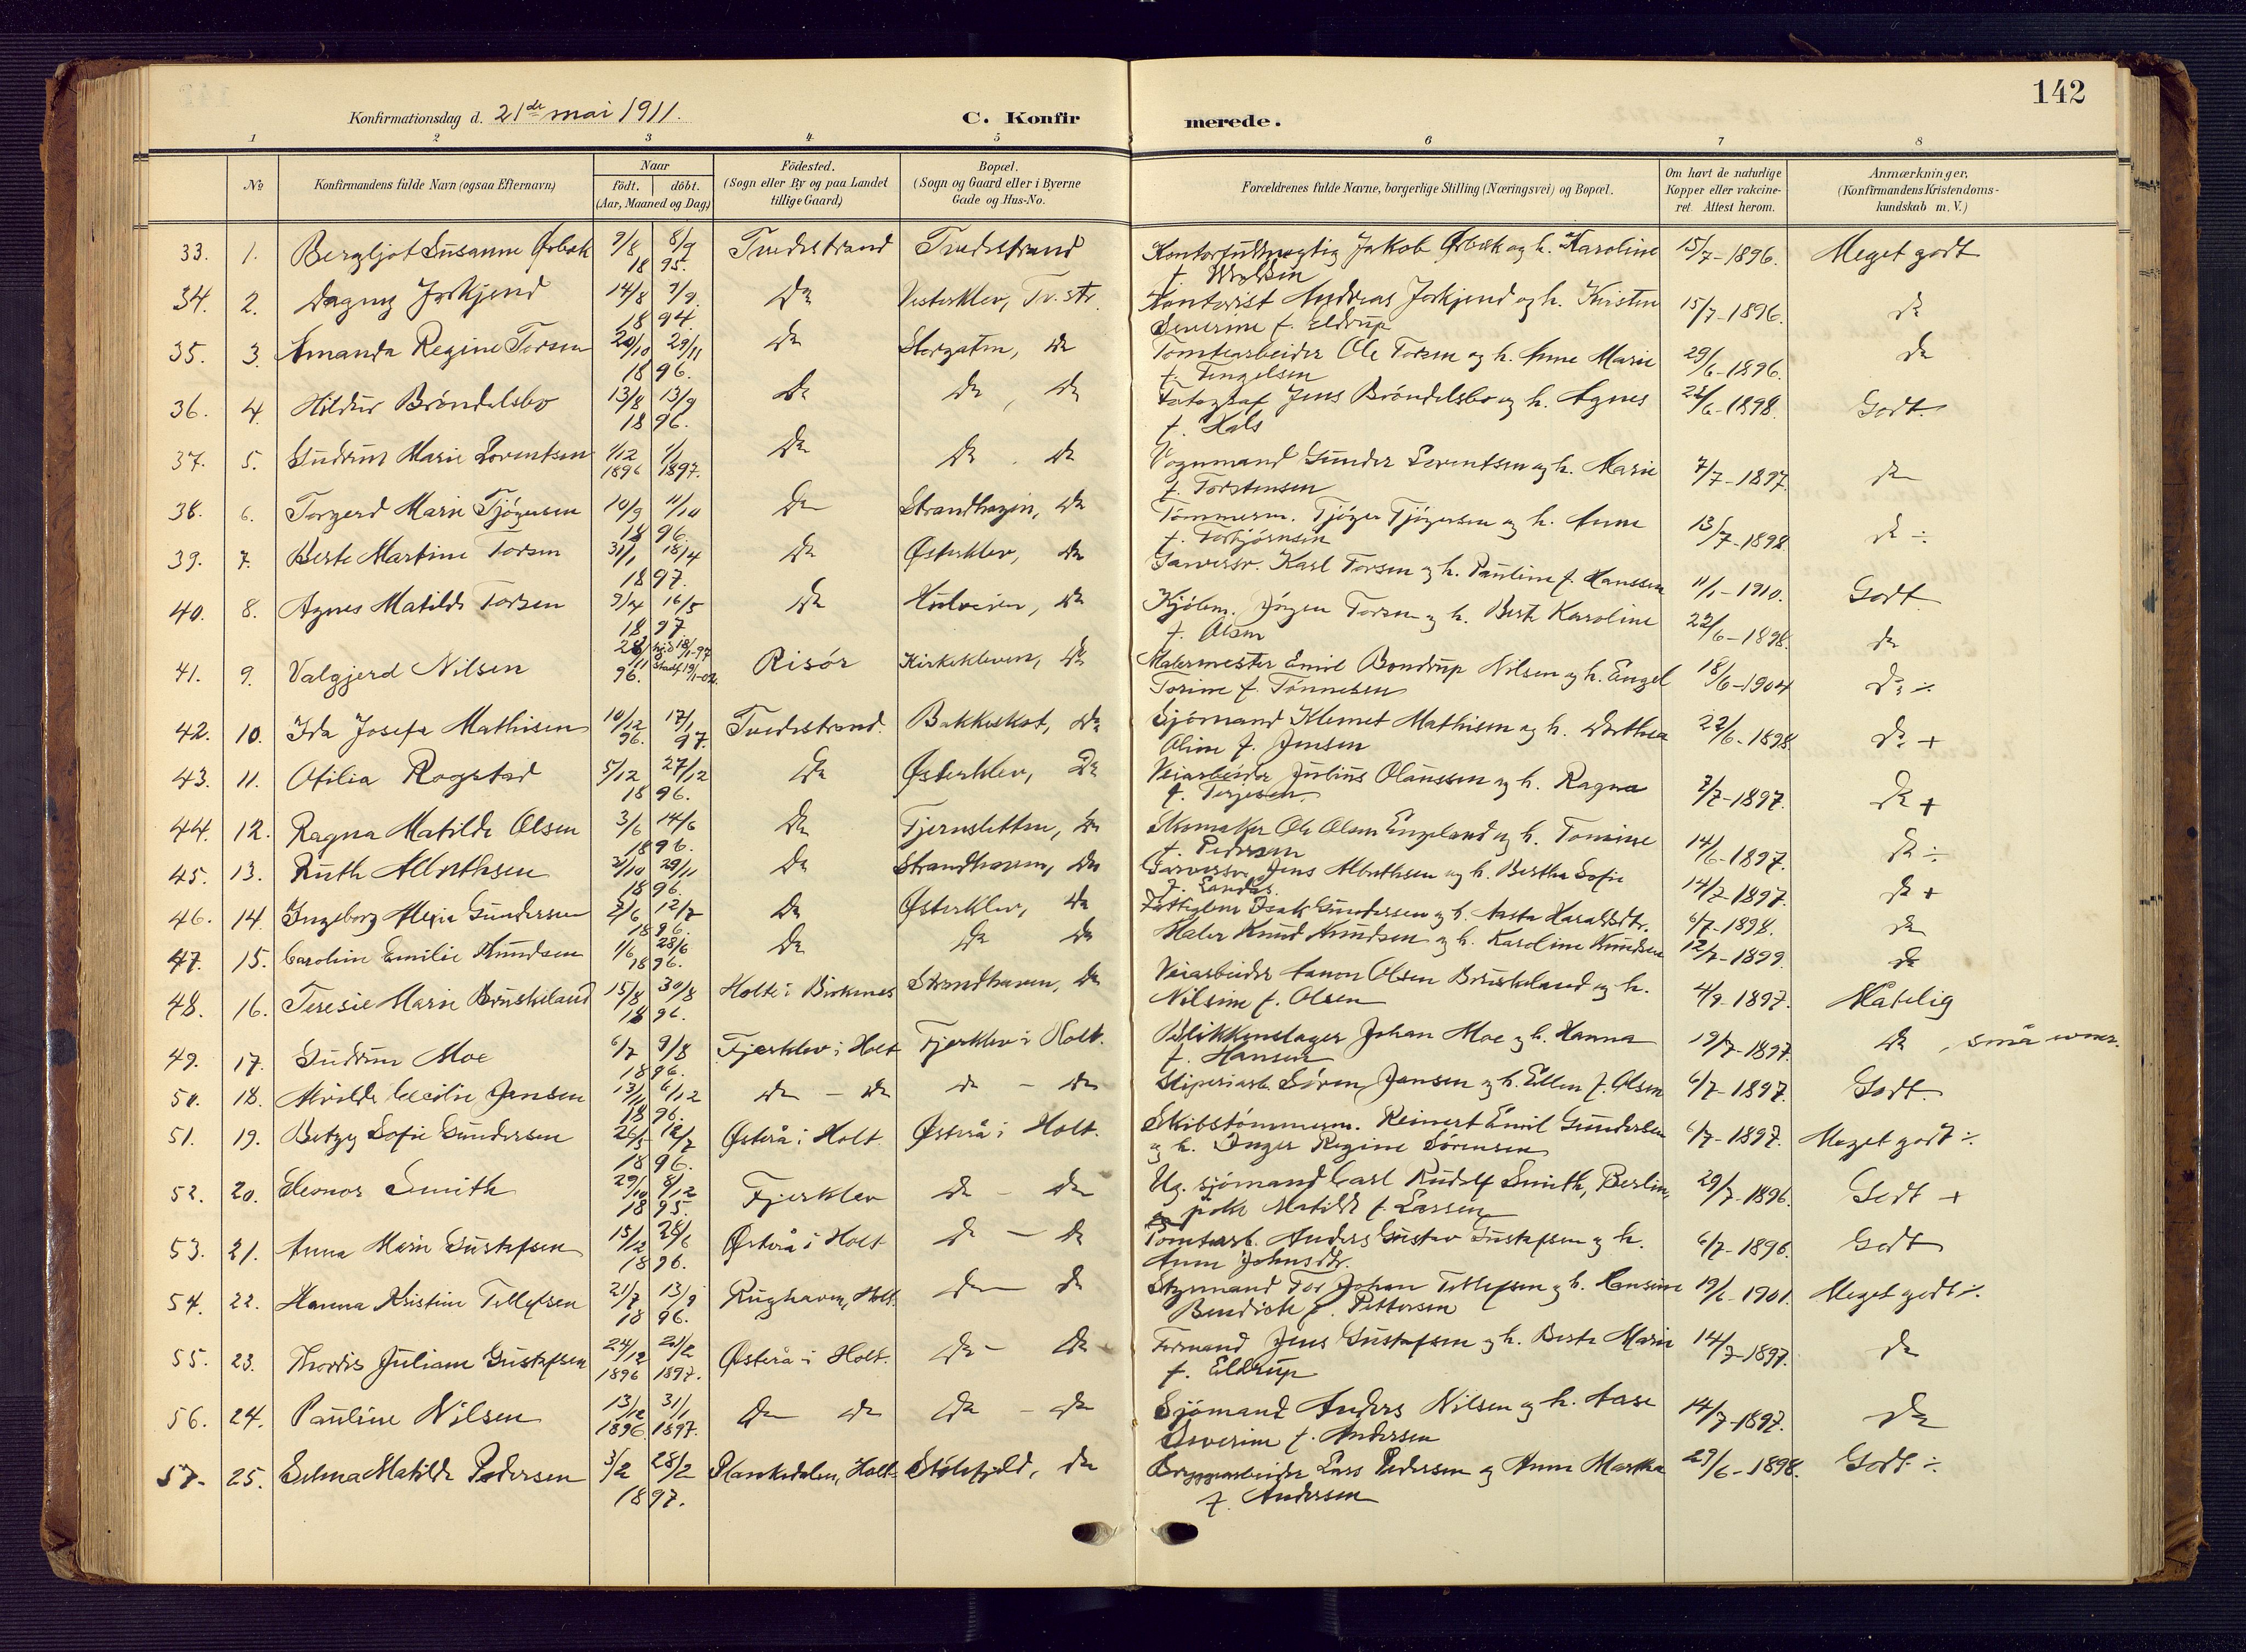 142
Konfirmationsdag d. 21de mai 1911.
C. Konfirmerede.
1 2 3 4 5 6 7 8
No
Konfirmandens fulde Navn (ogsaa Efternavn)
Naar
födt. döbt.
(Aar, Maaned og Dag)
Födested.
(Sogn eller By og paa Landet
tillige Gaard)
Bopæl.
(Sogn og Gaard eller i Byerne
Gade og Hus-No.
Forældrenes fulde Navne, borgerlige Stilling (Næringsvei) og Bopæl.
Om havt de naturlige
Kopper eller vakcine-
ret. Attest herom.
Anmærkninger,
(Konfirmandens Kristendoms-
kundskab m. V.)
33. 1. Bergljot Susanne Ørbæk 9/8 8/9 Tvedestrand Tvedestrand Kontorfuldmægtig Jakob Ørbæk og h. Karoline 15/7-1896. Meget godt
18 95. f.
34. 2. Dagny 14/8 9/9 Do Vesterklev, Tv.str. Kontorist Andreas og h. Kirsten 15/7-1896. do
18 94. Severine f. Eldrup
35. 3. Amanda Regine Torsen 20/10 29/11 Do Storgaten, Do Tomtearbeider Ole Torsen og h. Anne Marie 29/6-1896. Do
18 96. f. Tengelsen
36. 4. Hildur Bröndelsbo 13/8 13/9 Do Do, Do Fotograf Jens Bröndelsbo og h. Agnes 22/6-1898. Godt.
18 96. f. Hals
37. 5. Gudrun Marie Lorentsen 1/12 1/1 Do Do Do Vognmand Gunder Lorentsen og h. Marie 7/7-1897. Do
1896 1897. f. Torstensen
38. 6. Torgerd Marie Tjögersen 10/9 11/10 Do Strandhagen, Do Tömmerm. Tjöger Tjögersen og h. Anne 13/7-1898 do ÷
18 96. f. Torbjörnsen
39. 7. Berte Martine Torsen 31/1 18/4 Do Østerklev, Do Garversv. Karl Torsen og h. Pauline f. Hanssen 11/1-1910. Godt
18 97.
40. 8. Agnes Matilde Torsen 9/4 16/5 Do Hulveien, Do Kjölem. Jörgen Torsen og h. Berte Karoline 22/6-1898. do
18 97 f. Olsen
41. 9. Valgjerd Nilsen 28/11 18/1-97 Risör Kirkekleven, Do Malermester Emil Bondrup Nilsen og h. Engel 18/6-1904 Do ÷
96. Torine f. Tönnesen
42. 10. Ida Josefa Mathisen 10/12 17/1 Tvedestrand. Bakkeskot, Do Sjömand Klemet Mathisen og h. Dorthea 22/6-1898. Do +
96. 97. Oline f. Jensen
43. 11. Otilia Rogstad 5/12 27/12 Do Østerklev, Do Veiarbeider Julius Olaussen og h. Ragna 7/7-1897. Do +
18 96. f. Terjesen
44. 12. Ragna Matilde Olsen 3/6 14/6 Do Tjernsletten, Do Skomaker Ole Olsen Engeland og h. Tomine 14/6-1897. Do ÷
1896. f. Pedersen
45. 13. Ruth Albrethsen 21/10 29/11 Do Strandhaven, Do Garversv. Jens Albrethsen og h. Berthe Sofie 14/7-1897. do +
18 96. f. Landås.
46. 14. Ingeborg Alexia Gundersen 2/6 12/7 Do Østerklev, Do Isak Gundersen og h. Aasta Haraldsdtr. 6/7-1898. Do
18 96.
47. 15. Caroline Emilie Knudsen 1/6 28/6 Do Do Do Maler Knud Knudsen og h. Karoline Knudsen 12/7-1899 do
1896.
48. 16. Teresie Marie Brüskeland 15/8 30/8 Holte i Birkenes Strandhaven, Do Veiarbeider Aanon Olsen Brüskeland og h. 4/9-1897. Matelig
18 96. Nilsine f. Olsen
49. 17. Gudrun Moe 6/7 9/8 Fjerklev i Holt Fjerklev i Holt. Blikkenslager Johan Moe og h. Hanna 19/7-1897. Do, små evner.
1896. f. Hansen
50. 18. Alvilde Cecilie Jansen 13/11 6/12 do - do do - do Sliperiarb Sören Jansen og h. Ellen f. Olsen 6/7-1897. Godt.
18 96.
51. 19. Betzy Sofie Gundersen 26/5 12/7 Østerå i Holt. Østerå i Holt. Skibstömmerm. Reinert Emil Gundersen 6/7-1897. Meget godt ÷
18 96. og h. Inger Regine Sörensen
52. 20. Eleonor Smith 29/10 8/12 Fjerklev Do - Do Ug. sjömand Carl Rudolf Smith, Berlin, 29/7-1896. Godt +
18 95. pike Matilde f. Larsen
53. 21. Anna Marie Gustafsen 15/12 28/6 Østerå i Holt Do - Do Tomtearb. Anders Gustav Gustafsen og h. 6/7-1896. Godt
18 96. Anne Johnsdtr.
54. 22. Hanna Kristine Tellefsen 21/7 13/9 Rughaven, Holt. Do - Do Styrmand Tor Johan Tellefsen og h. Hansine 19/6-1901. Meget godt ÷
18 96. Benedicte f. Pettersen
55. 23. Thordis Juliane Gustafsen 24/12 21/2 Østerå i Holt. Do - Do Formand Jens Gustafsen og h. Berte Marie 14/7-1897. Do
1896 1897. f. Eldrup
56. 24. Pauline Nilsen 13/12 31/1 Do Do Do - Do Sjömand Anders Nilsen og h. Aase 14/7-1897. Do
1896. 1897. Severine f. Andersen
57. 25. Selma Matilde Pedersen 3/2 28/2 Plankedalen, Holt Stölefjeld, Do Bryggearbeider Lars Pedersen og Anne Martha 29/6-1898. Godt. ÷
1897. f. Andersen